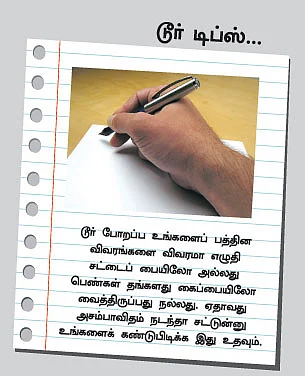 டூர் டிப்ஸ்...
டூர் போறப்ப உங்களைப் பத்தின
விவரங்களை விவரமா எழுதி
சட்டைப் பையிலோ அல்லது
பெண்கள் தங்களது கைப்பையிலோ
வைத்திருப்பது நல்லது. ஏதாவது
அசம்பாவிதம் நடந்தா சட்டுன்னு
உங்களைக் கண்டுபிடிக்க இது உதவும்.